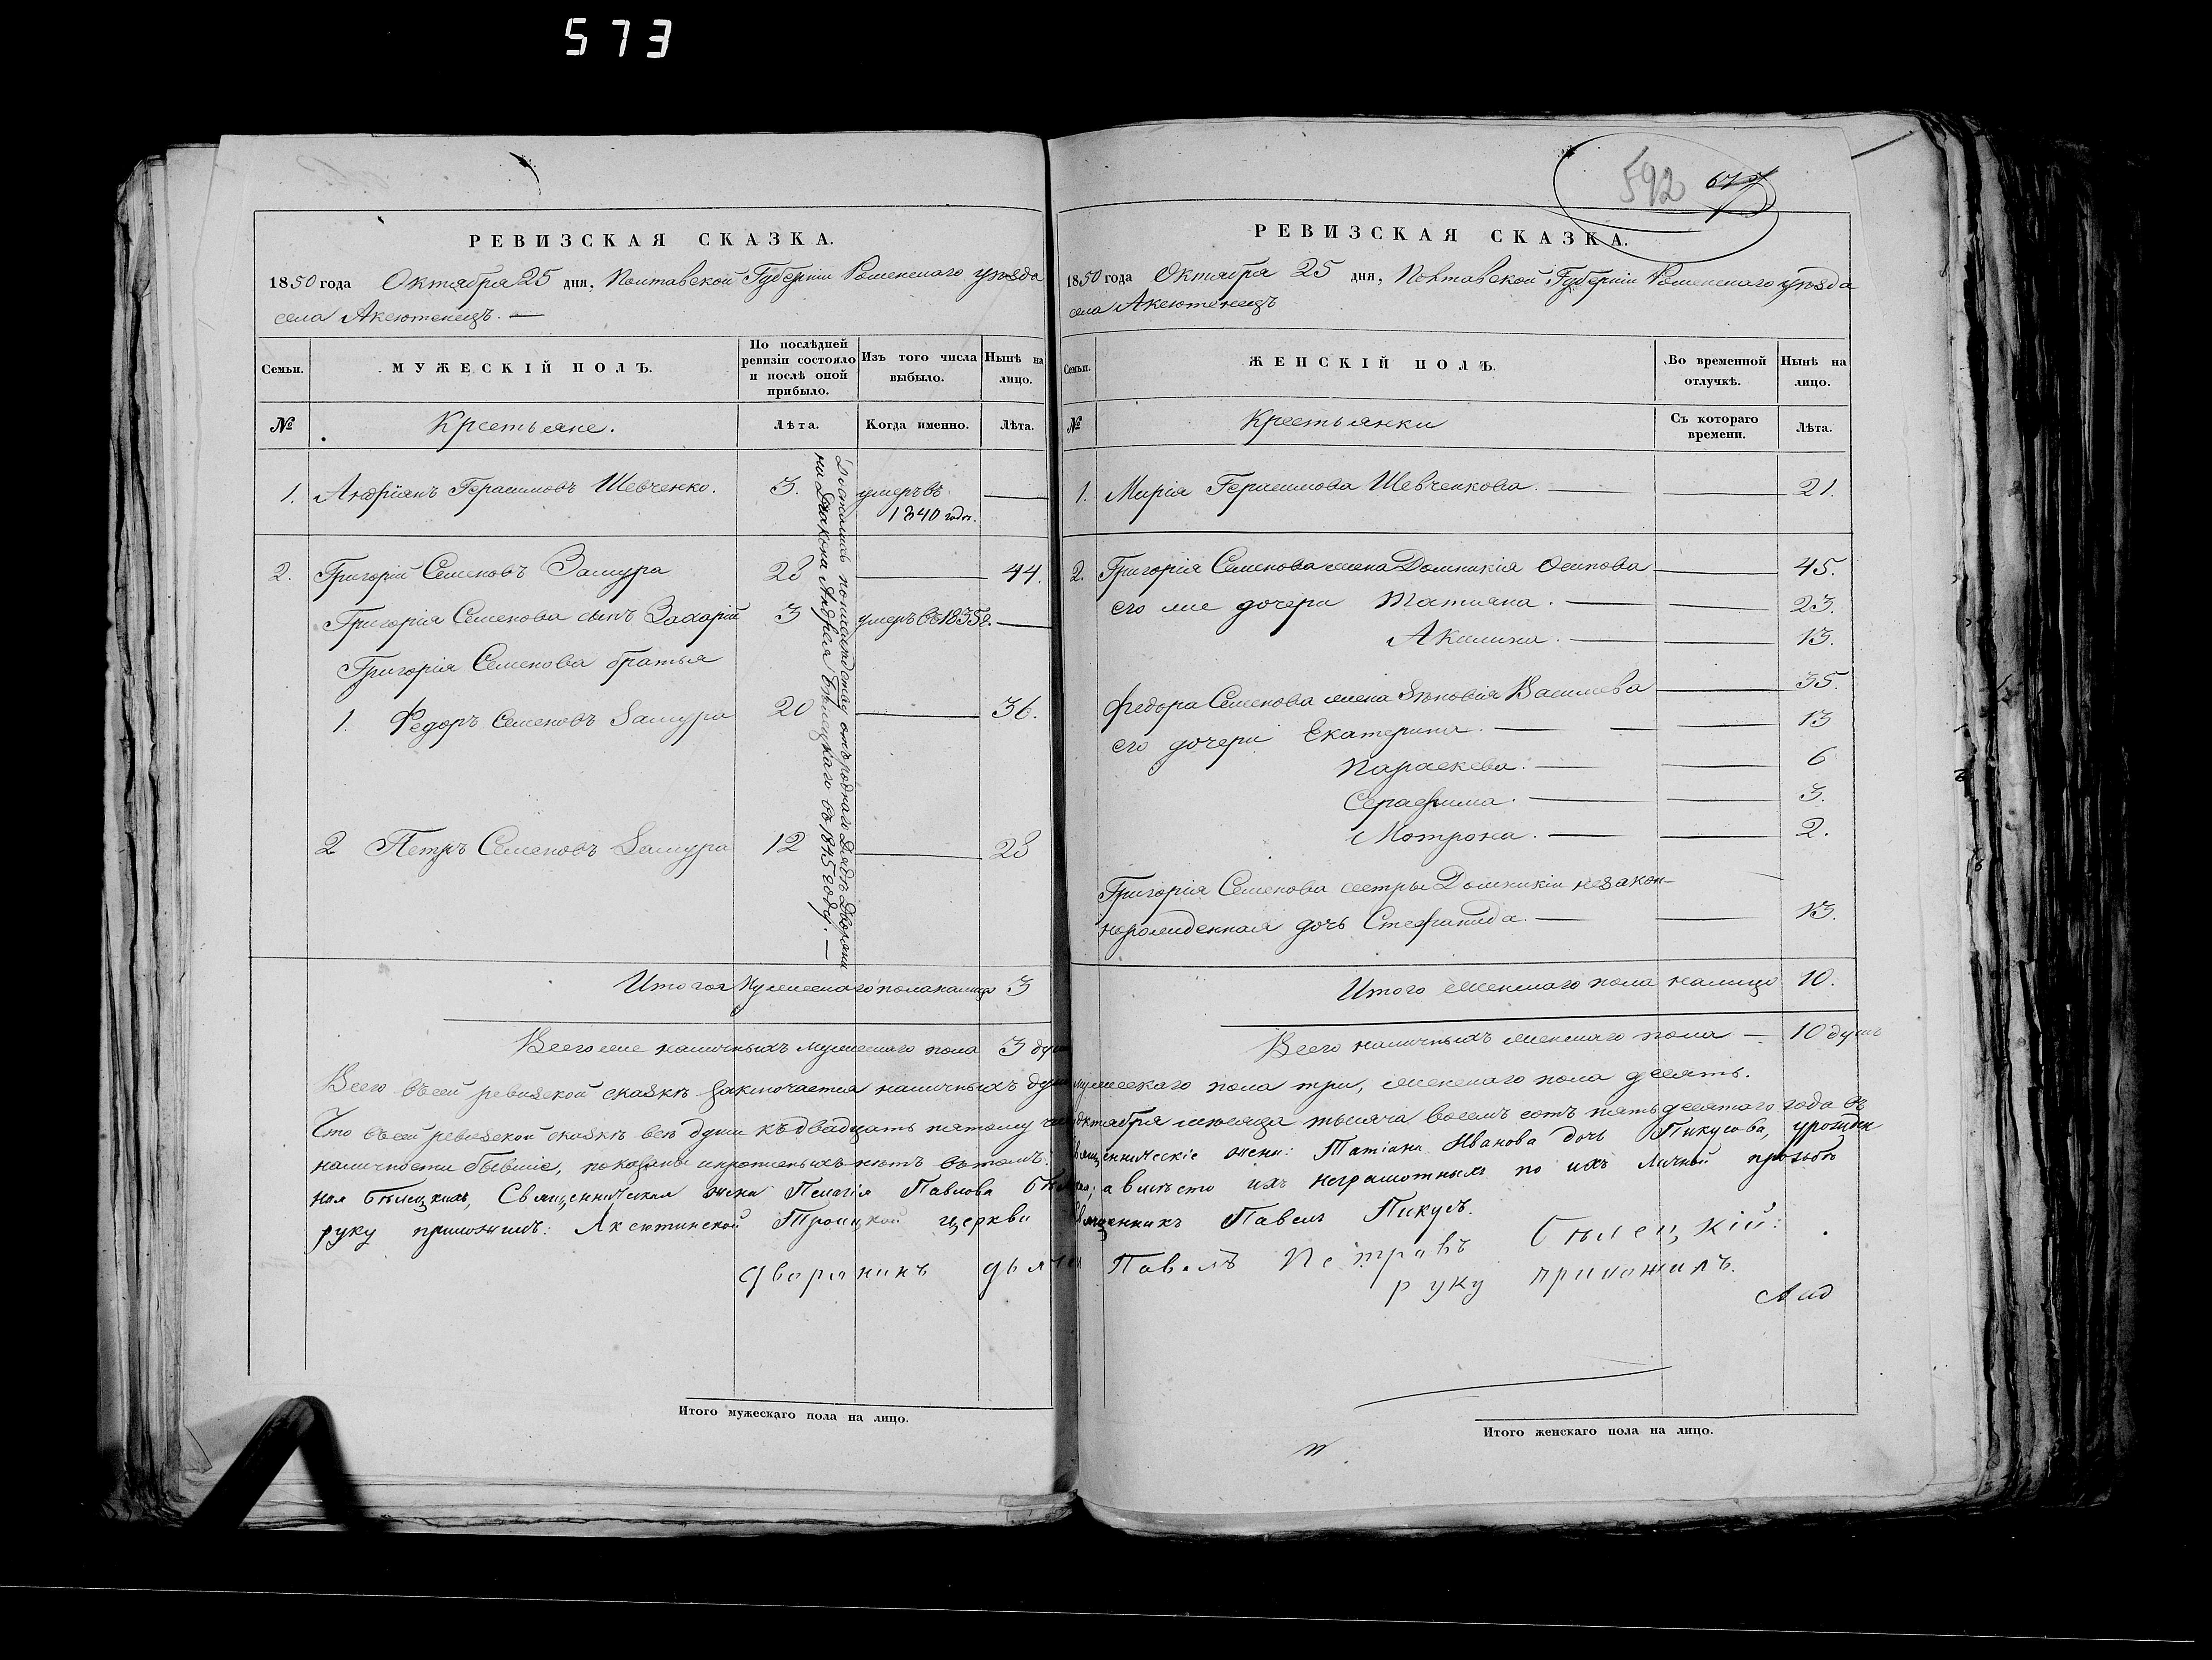 573
РЕВИЗСКАЯ СКАЗКА.
1850 года Октября 25 дня, Полтавской Губерніи Роменскаго уѣзда
села Аксютенецъ.
Семьи.
МУЖЕСКІЙ ПОЛЪ.
По послѣдней ревизіи состояло и послѣ оной прибыло.
Изъ того числа выбыло.
Нынѣ на лицо.
№
Крестьяне.
Лѣта.
Когда именно.
Лѣта.
1. Андріянъ Герасимовъ Шевченко. 3. умеръ въ
1840 годѣ.
2. Григорій Семеновъ Замура 28 44.
Григорія Семенова сынъ Захарій 3 умеръ въ 1835 г.
Григорія Семенова братья
1. Федоръ Семеновъ Замура 20 36.
2 Петръ Семеновъ Замура 12 28
Достались по наслѣдству отъ роднаго Дяди Дворяни
на Діакона Андрея Бѣлецкаго въ 1845 году.
Итого Мужескаго пола налицо 3
Всего же наличныхъ мужескаго пола 3 душ
592
РЕВИЗСКАЯ СКАЗКА.
1850 года Октября 25 дня, Полтавской Губерніи Роменскаго уѣзда
села Аксютенецъ
Семьи.
ЖЕНСКІЙ ПОЛЪ.
Во временной отлучкѣ.
Нынѣ на лицо.
№
Крестьянки
Съ котораго времени.
Лѣта.
1. Марія Герасимова Шевченкова. 21.
2. Григорія Семенова жена Домникія Осипова 45.
его же дочери Татіяна. 23.
Акилина. 13.
Федора Семенова жена Зѣновія Василіева 35.
его дочери Екатерина. 13
Параскева. 6
Серафима. 3.
Мотрона. 2.
Григорія Семенова сестры Домникіи незакон-
норожденная дочь Стефанида. 13.
Итого женскаго пола налицо 10.
Всего наличныхъ женскаго пола 10 душъ
Всего въ сей ревизской сказкѣ заключается наличныхъ душ мужескаго пола три, женскаго пола десять.
Что въ сей ревизской сказкѣ всѣ души къ двадцать пятому чис октября мѣсяца тысяча восемь сотъ пятьдесятаго года въ
наличности бывшіе, показаны и пропиеныхъ нѣтъ въ томъ: Священническіе жены: Татіана Иванова дочь Пикусова, урожден
ная Бѣлецкихъ, Священническая жена Пелагія Павлова а вмѣсто ихъ неграмотныхъ по ихъ личной прозьбѣ
руку приложилъ: Аксютинской Троицкой церкви Священникъ Павелъ Пикусъ.
Дворянинъ дьячек Павелъ Петровъ Бѣлецкій:
руку приложилъ.
Итого мужескаго пола на лицо.
Итого женскаго пола на лицо.